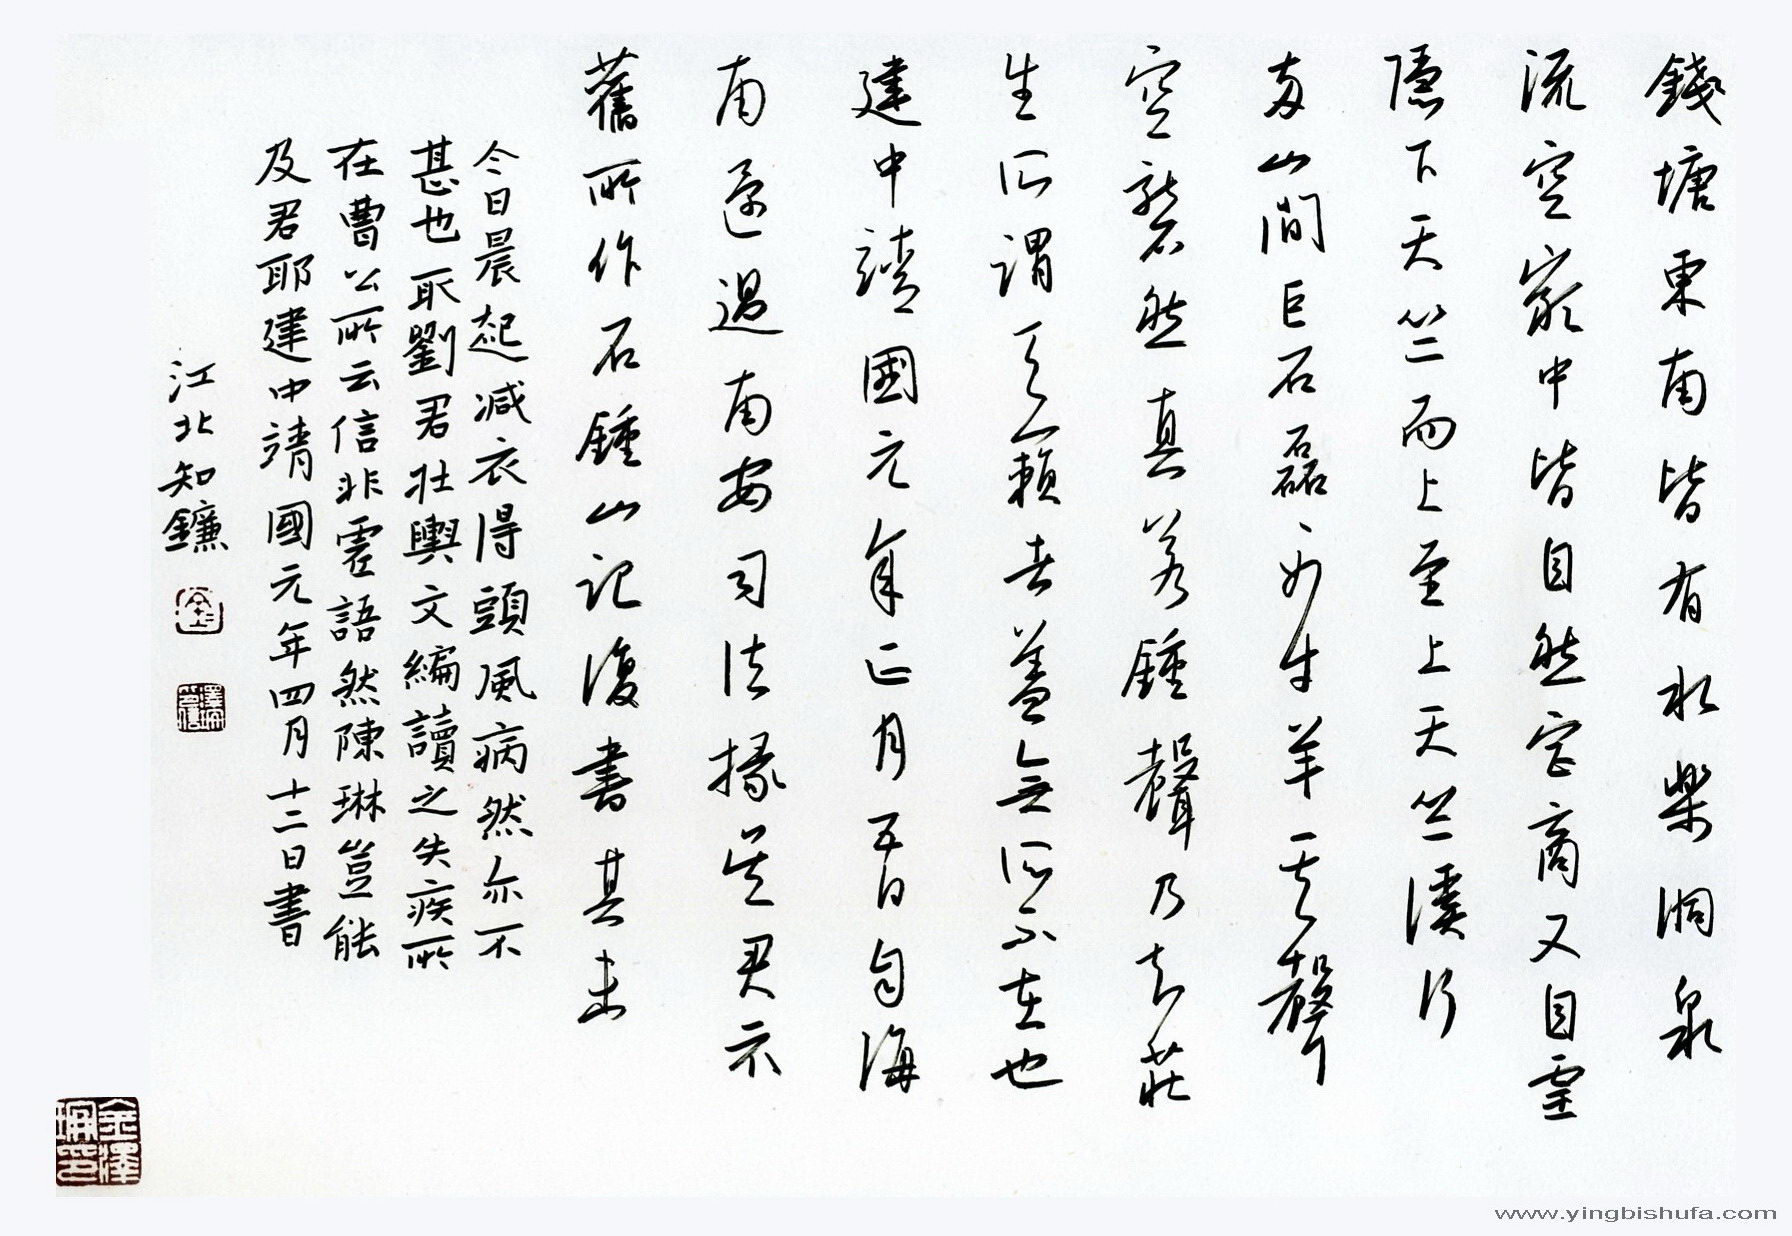 錢塘東南皆有水樂洞泉
流空巖中皆自然宮商又自靈
隱下天竺而上至上天竺溪行
兩山間巨石磊〻如牛羊其聲
空礱然真若鍾聲乃知莊
生所謂天籟者蓋無所不在也
建中靖國元年正月五日自海
南還過南安司法掾吳君示
舊所作石鍾山記復書其末
今日晨起減衣得頭風病然亦不
甚也取劉君壯輿文編讀之失疾所
在曹公所云信非虛語然陳琳豈能
及君耶建中靖國元年四月十二日書
江北知鐮
金澤珊印
www.yingbishufa.com